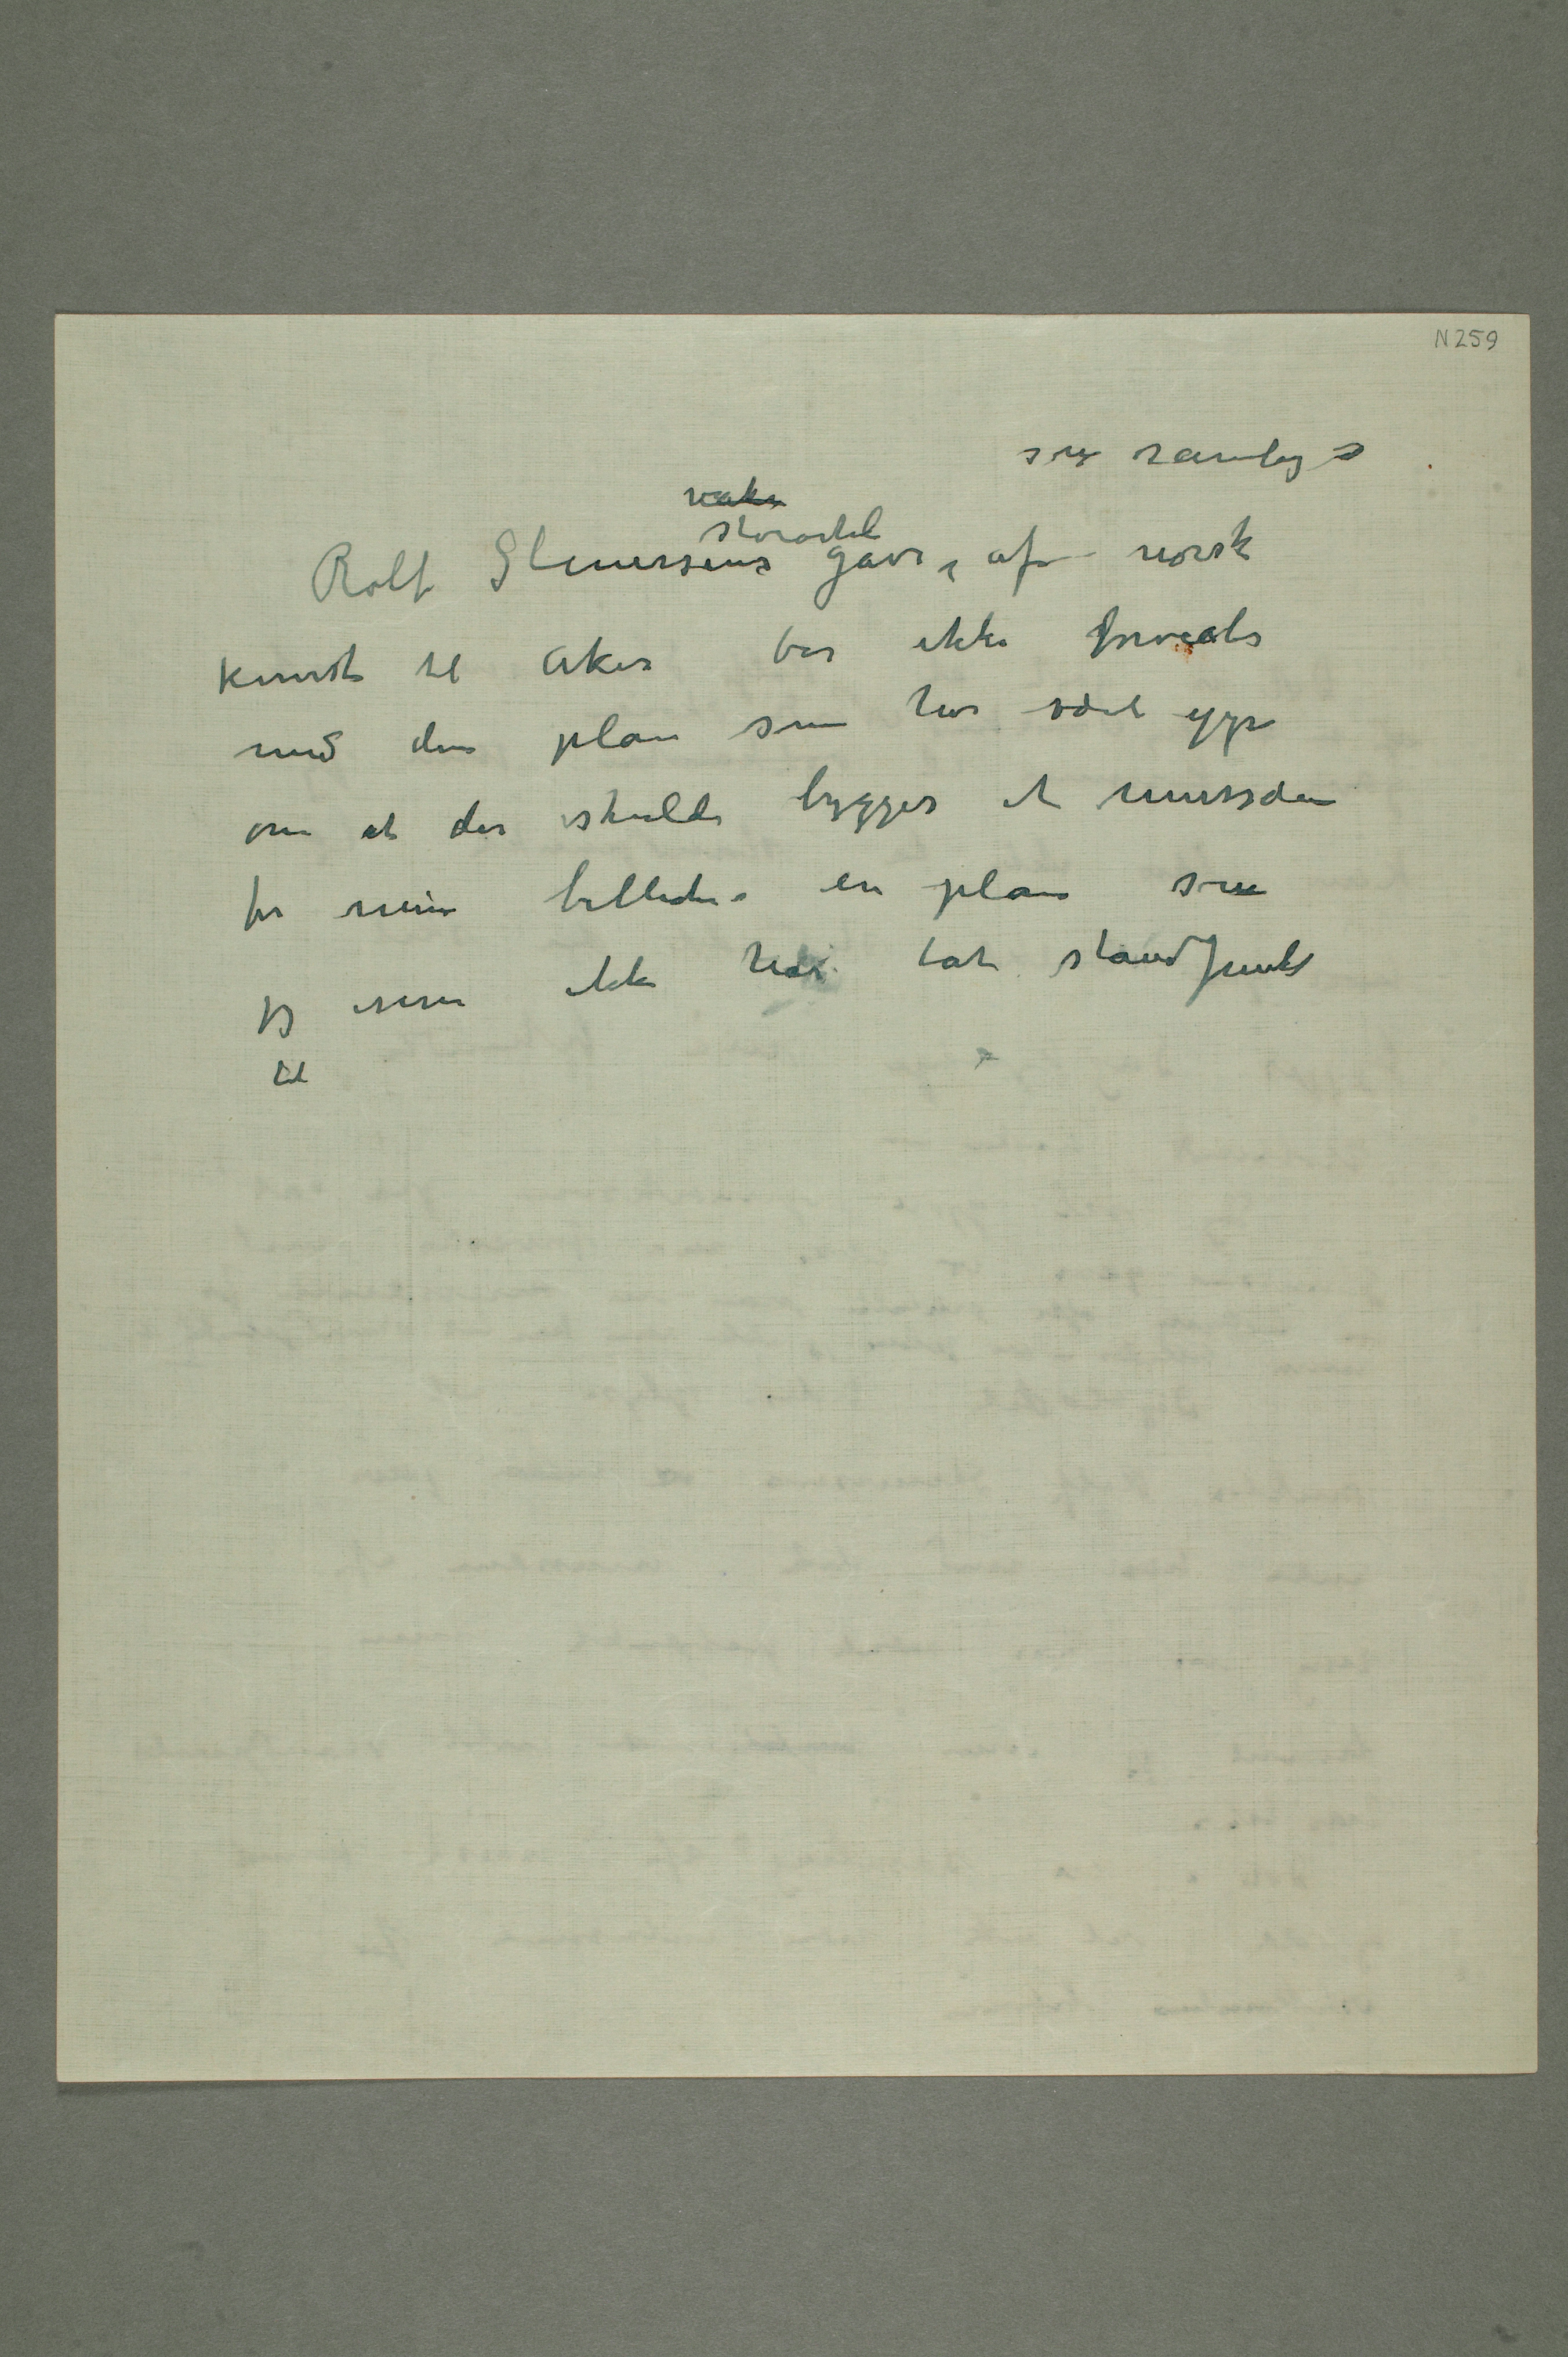 N 259
sin samling
vakre
storartet
Rolf Stenersens gave, af norsk
kunst til Aker bør ikke forveksles
med den plan som har vært oppe
om at der skulde bygges et museum
for mine billeder – en plan som
jeg ennu ikke har tat standpunkt
til